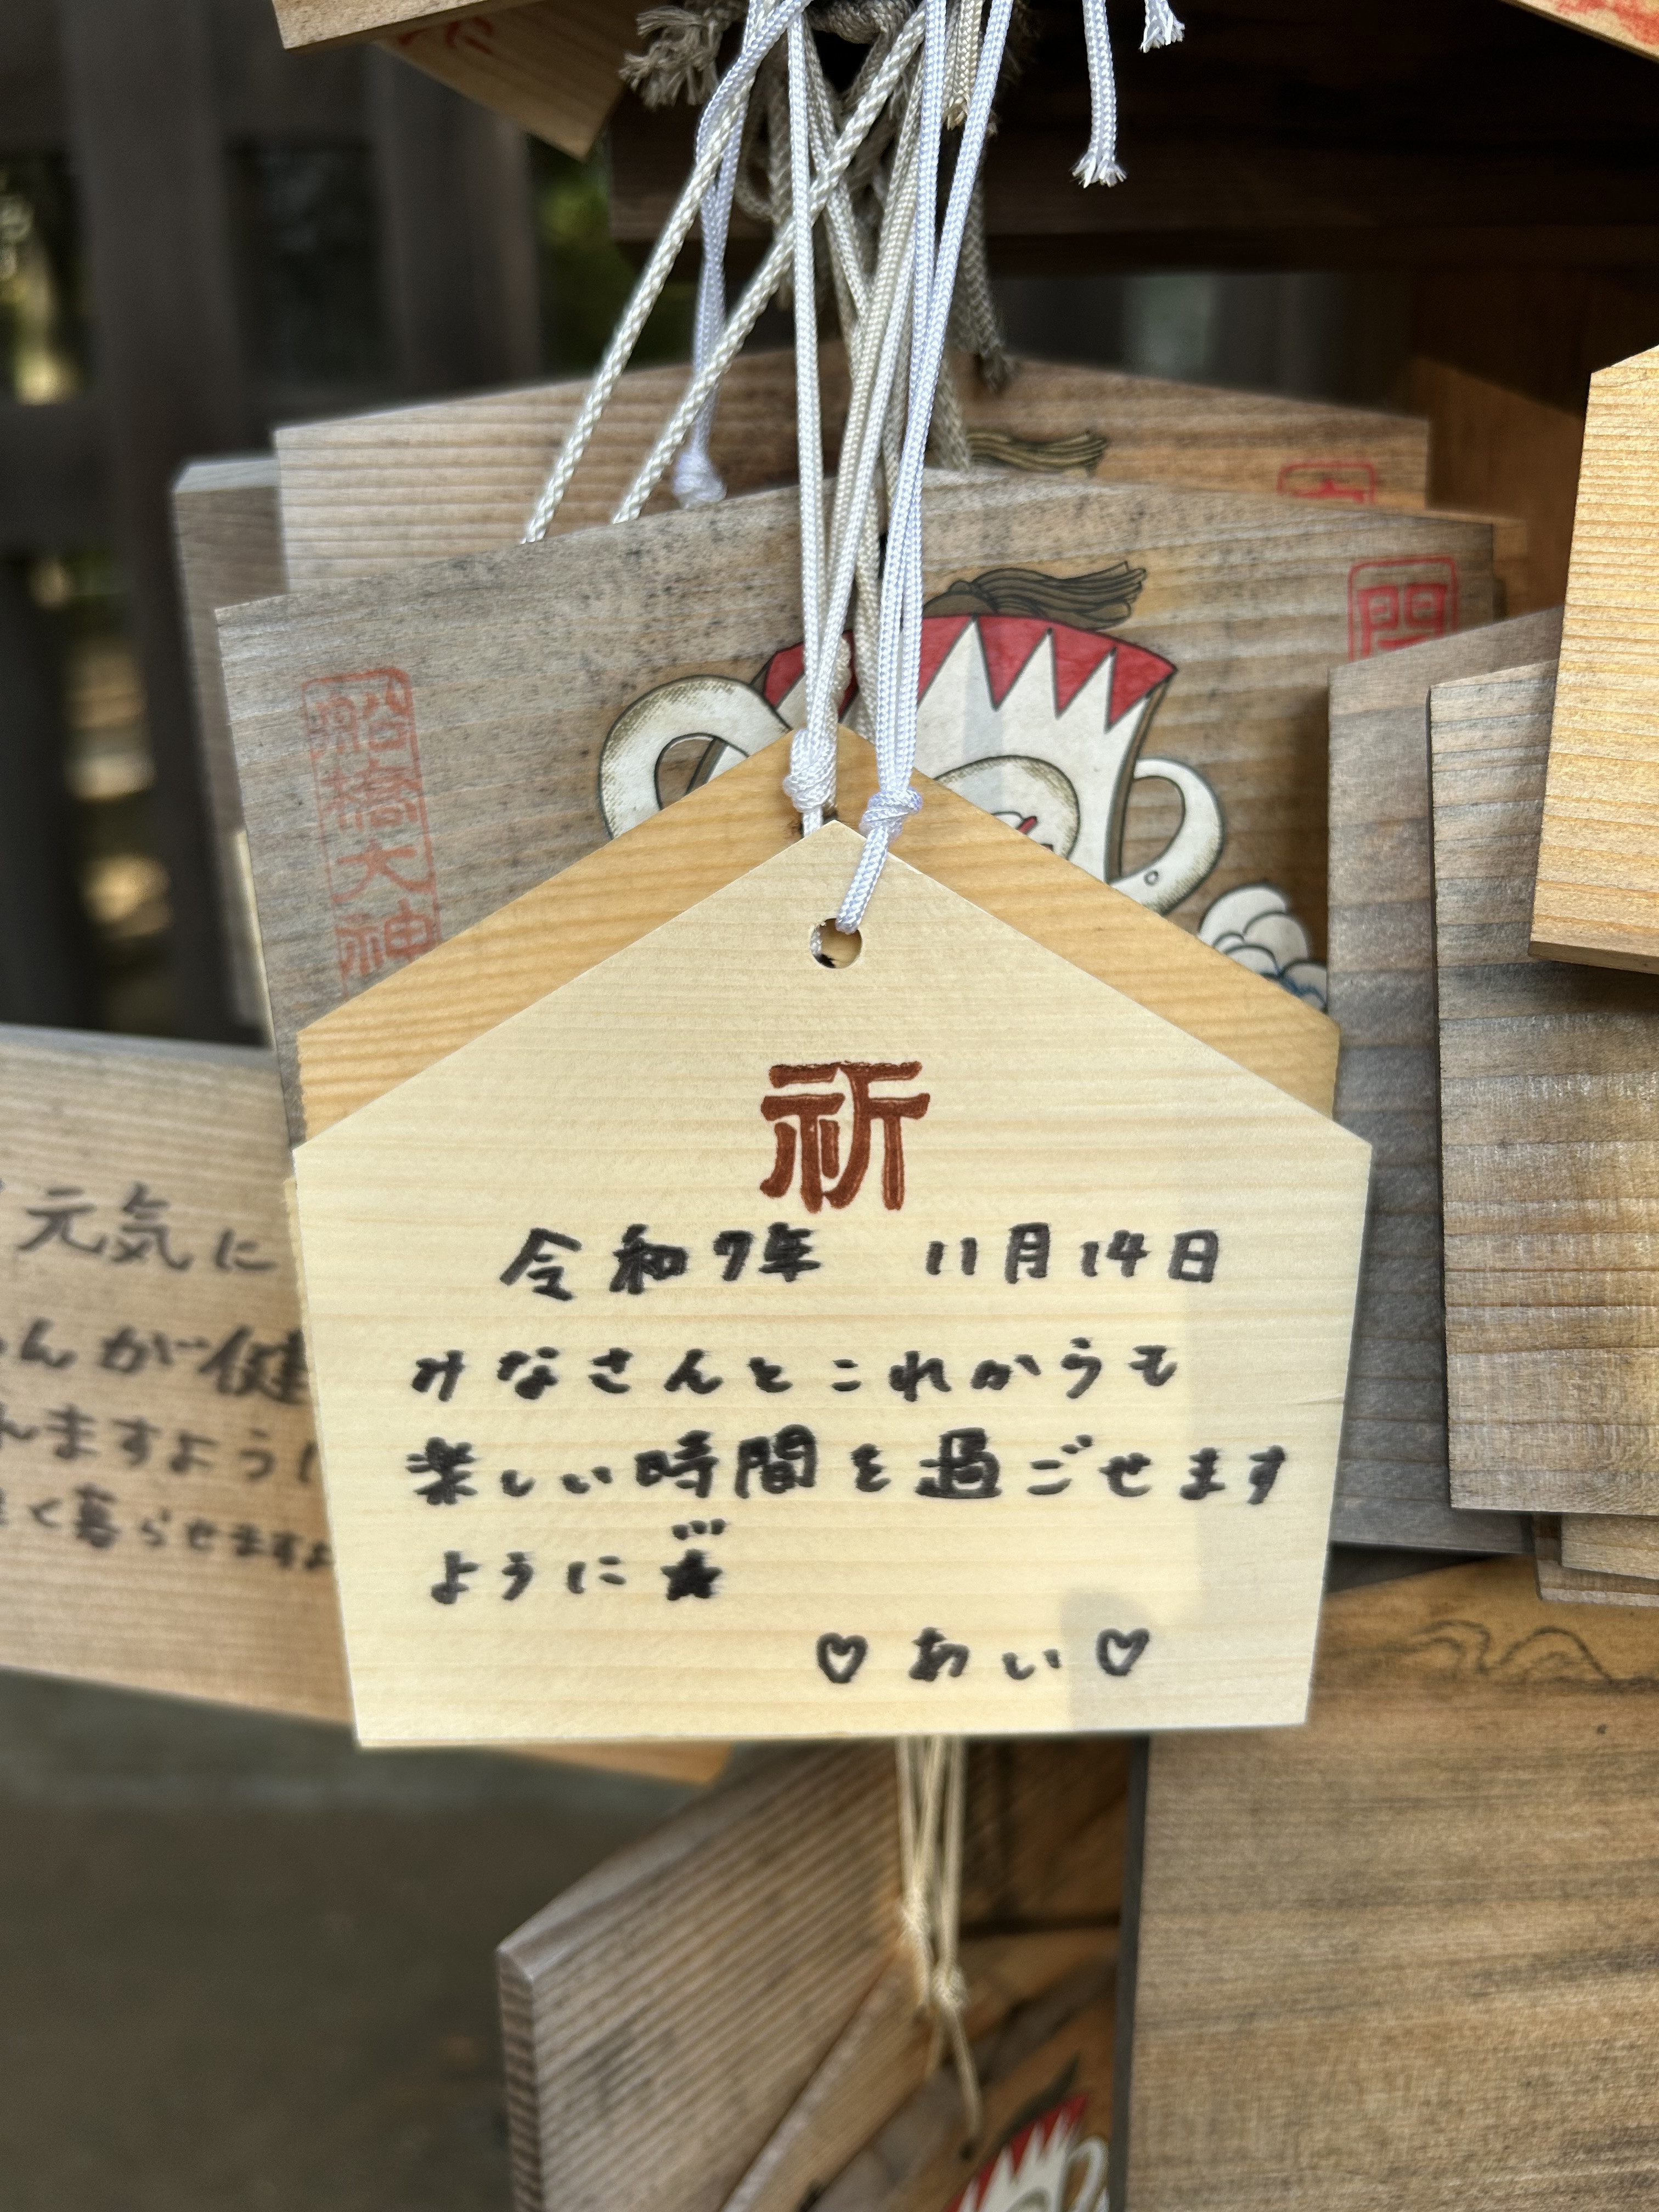 船橋大神
門
祈
令和7年 11月14日
みなさんとこれからも
楽しい時間を過ごせます
ように★
♡あい♡
元気に
んが健
ますように
く暮らせますよ